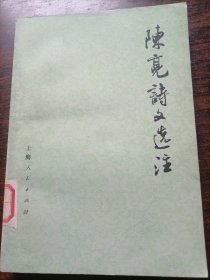 陳亮詩文选注
上海人民出版社